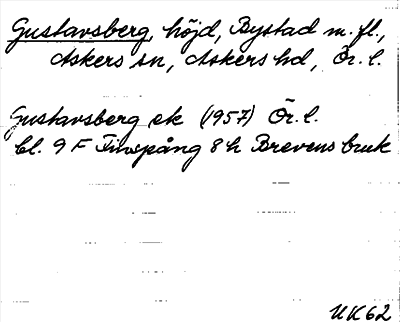 Gustavsberg, höjd, Bystad m. fl.,
Askers sn, Askers hd, Ör. l.
Gustavsberg ek (1957) Ör. l.
bl. 9 F Finspång 8 h Brevens bruk
UK62